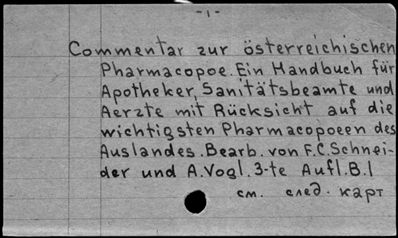 -1-
Commentar zur österreichischen
Pharmacopoe. Ein Handbuch für
Apotheker, Sanitätsbeamte und
Aerzte mit Rücksicht auf die
wichtigsten Pharmacopoeen des
Auslandes. Bearb. von F.C. Schnei-
der und A. Vogl. 3-te Aufl. B. I
см. след. карт